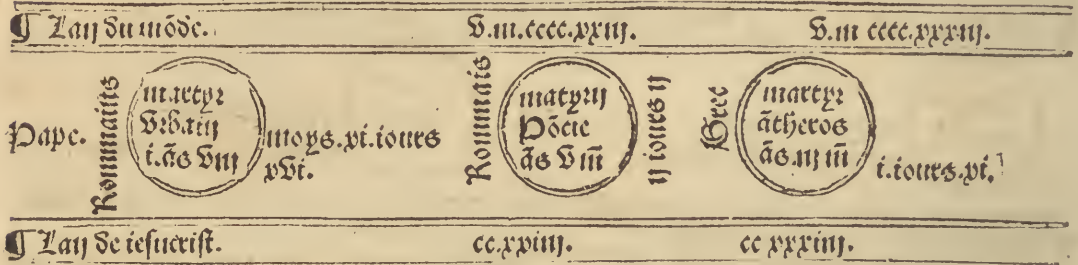 ¶ Lan du mõde. v.m.cccc.xxiij. v.m cccc.xxxiij.
Pape.
Rommains
martyr
Vrbain
i.ãs viij
moys.xi.iours
xvi.
Rommais
Põcie
ãs v m̃
ij iours ij
Grec
martyr
ãtheros
ãs.iij m̃
i.iours.xi.
¶ Lan de iesucrist. cc.xxiiij. cc xxxiiij.